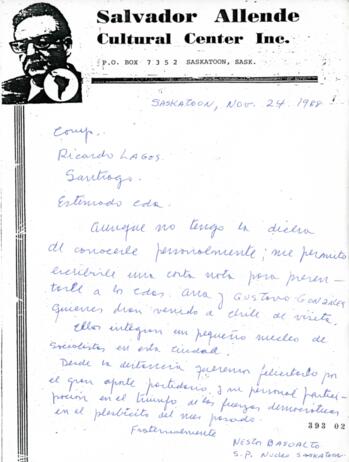 Salvador Allende
Cultural Center Inc.
P.O. BOX 7352 SASKATOON, SASK.
SASKATOON, NOV. 24. 1988
Comp.
Ricardo LAGOS.
Santiago.
Estimado cda.
Aunque no tengo la dicha
de conocerle personalmente; me permito
escribirle una corta nota para presen-
tarle a los cdas. Ana y GUSTAVO GONZALEZ
quienes van a Chile de visita.
Ellos integran un pequeño nucleo de
socialistas en esta ciudad.
Desde la distancia queremos felicitarlo por
el gran aporte partidario, y su personal partici-
pación en el triunfo de las fuerzas democraticas
en el plesbicito del mes pasado.
393 02
Fraternalmente
NESTOR BASOALTO
S.P. Nucleo Saskatoon